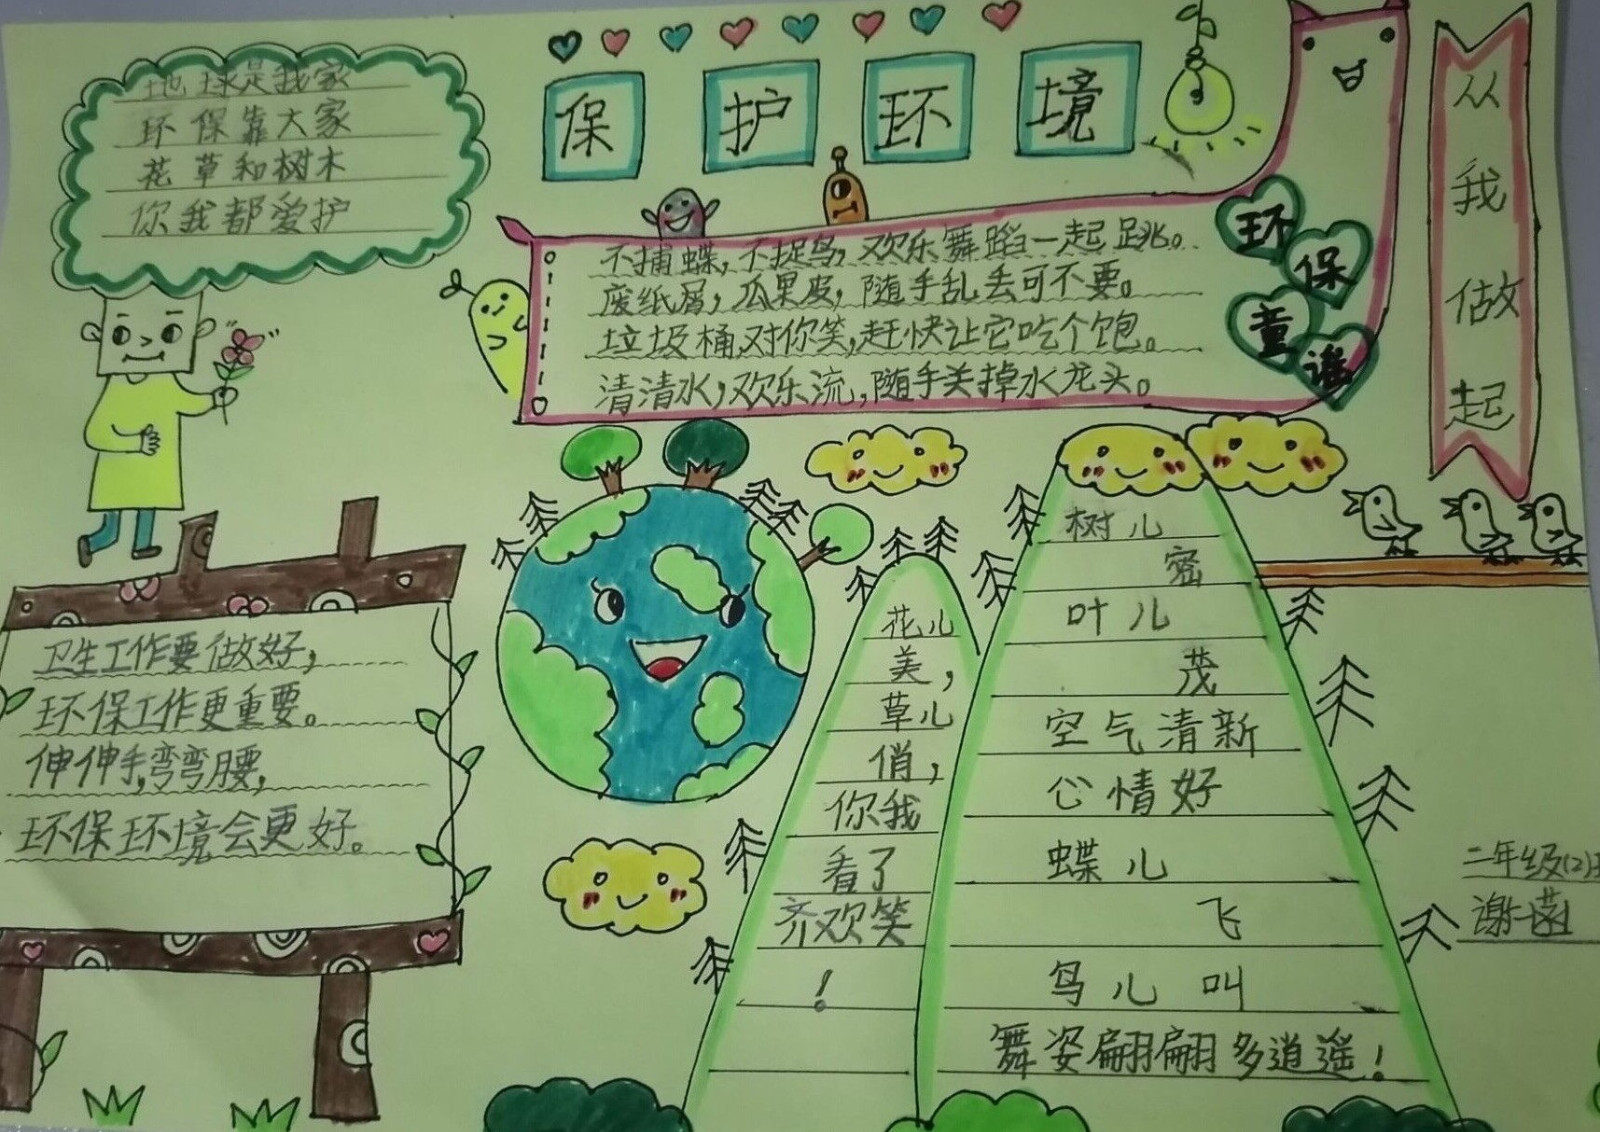 保护环境
从我做起
地球是我家
环保靠大家
花草和树木
你我都爱护
环保童谣
不捕蝶，不捉鸟，欢乐舞蹈一起跳。
废纸屑，瓜果皮，随手乱丢可不要。
垃圾桶，对你笑，赶快让它吃个饱。
清清水，欢乐流，随手关掉水龙头。
卫生工作要做好，
环保工作更重要。
伸伸手，弯弯腰，
环保环境会更好。
花儿
美，
草儿
俏，
你我
看了
齐欢笑
！
树儿
密
叶儿
茂
空气清新
心情好
蝶儿
飞
鸟儿叫
舞姿翩翩多逍遥！
二年级(2)
谢